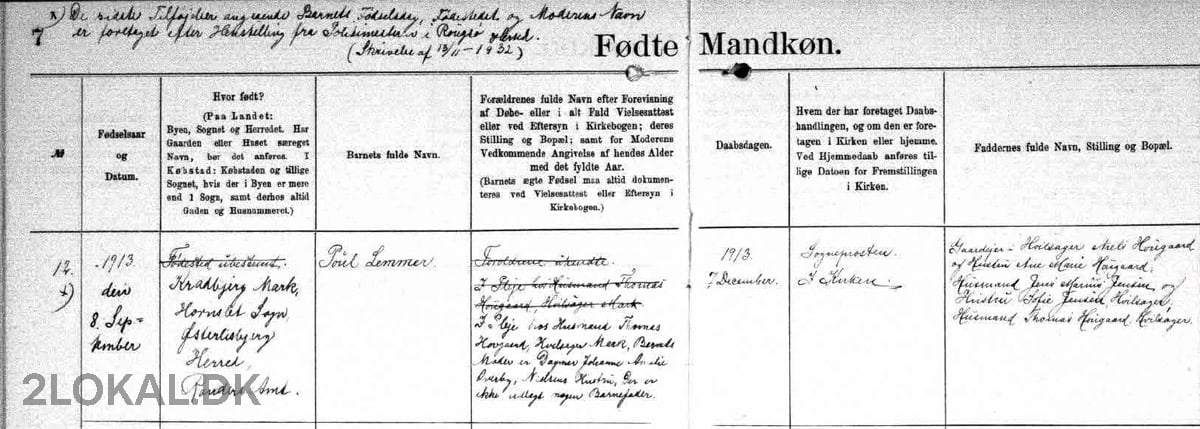 x) De sidste Tilføjelser angaaende Barnets Fødselsdag, Fødestedet og Moderens Navn
7 er foretaget efter Henstilling fra Politimesteren i Rougsø Herred.
(Skrivelse af 13/11-1932)
Fødte Mandkøn.
№
Fødselsaar
og
Datum.
Hvor født?
(Paa Landet:
Byen, Sognet og Herredet. Har
Gaarden eller Huset særeget
Navn, bør det anføres. I
Købstad: Købstaden og tillige
Sognet, hvis der i Byen er mere
end 1 Sogn, samt derhos altid
Gaden og Husnummeret.)
Barnets fulde Navn.
Forældrenes fulde Navn efter Forevisning
af Døbe- eller i alt Fald Vielsesattest
eller ved Eftersyn i Kirkebogen; deres
Stilling og Bopæl; samt for Moderens
Vedkommende Angivelse af hendes Alder
med det fyldte Aar.
(Barnets ægte Fødsel maa altid dokumen-
teres ved Vielsesattest eller Eftersyn i
Kirkebogen.)
Daabsdagen.
Hvem der har foretaget Daabs-
handlingen, og om den er fore-
tagen i Kirken eller hjemme.
Ved Hjemmedaab anføres til-
lige Datoen for Fremstillingen
i Kirken.
Faddernes fulde Navn, Stilling og Bopæl.
12.
x)
1913
den
8. Sep-
tember
Fødested ubestemt.
Kradbjerg Mark,
Hornslet Sogn,
Østerlisbjerg
Herred,
Randers Amt.
Poul Lemmer.
Forældrene ukendte.
I Pleje hos Husmand Thomas
Hougaard, Hvilsager Mark
I Pleje hos Husmand Thomas
Hovgaard, Hvilsager Mark, Barnets
Moder er Dagmar Johanne Amalie
Overby, Nielsens Hustru, Der er
ikke udlagt nogen Barnefader.
1913
7 December.
Sognepræsten.
I Kirken
Gaardejer Hvilsager Niels Hougaard
og Hustru Ane Marie Hougaard,
Husmand Jens Marius Jensen og
Hustru Sofie Jensen Hvilsager,
Husmand Thomas Hougaard Hvilsager.
2LOKAL.DK